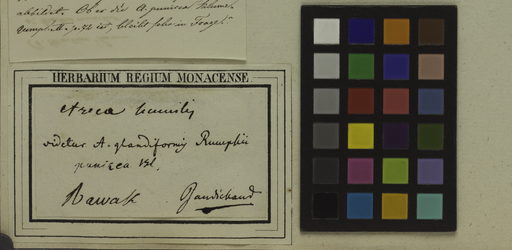 abbildet. Ob er die A. punicea Blume's
HERBARIUM REGIUM MONACENSE
Areca humilis
videtur A. glandiformis Rumphii
punicea Bl.
Rawak Gaudichaud